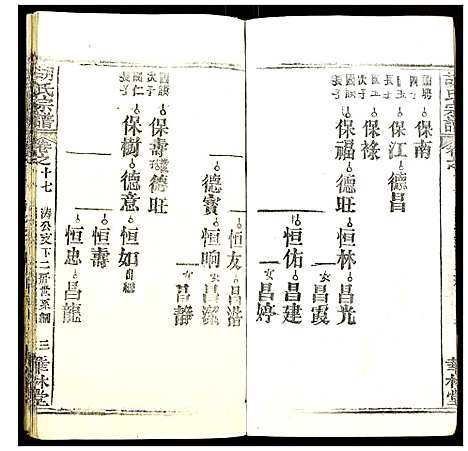 胡氏宗譜
卷之
國聘
長子
保南
保江
德昌
保祿
保福
德旺
恒林
昌光
女
昌霞
恒佑
昌建
女
昌婷
次子
保壽
德旺
國仁
長子
保樹
德意
德寶
恒友
昌浩
恒响
昌潔
女
昌靜
恒如
恒壽
恒忠
昌龍
胡氏宗譜
卷之十七
濤公支下二房世系圖
三
華林堂
華林堂